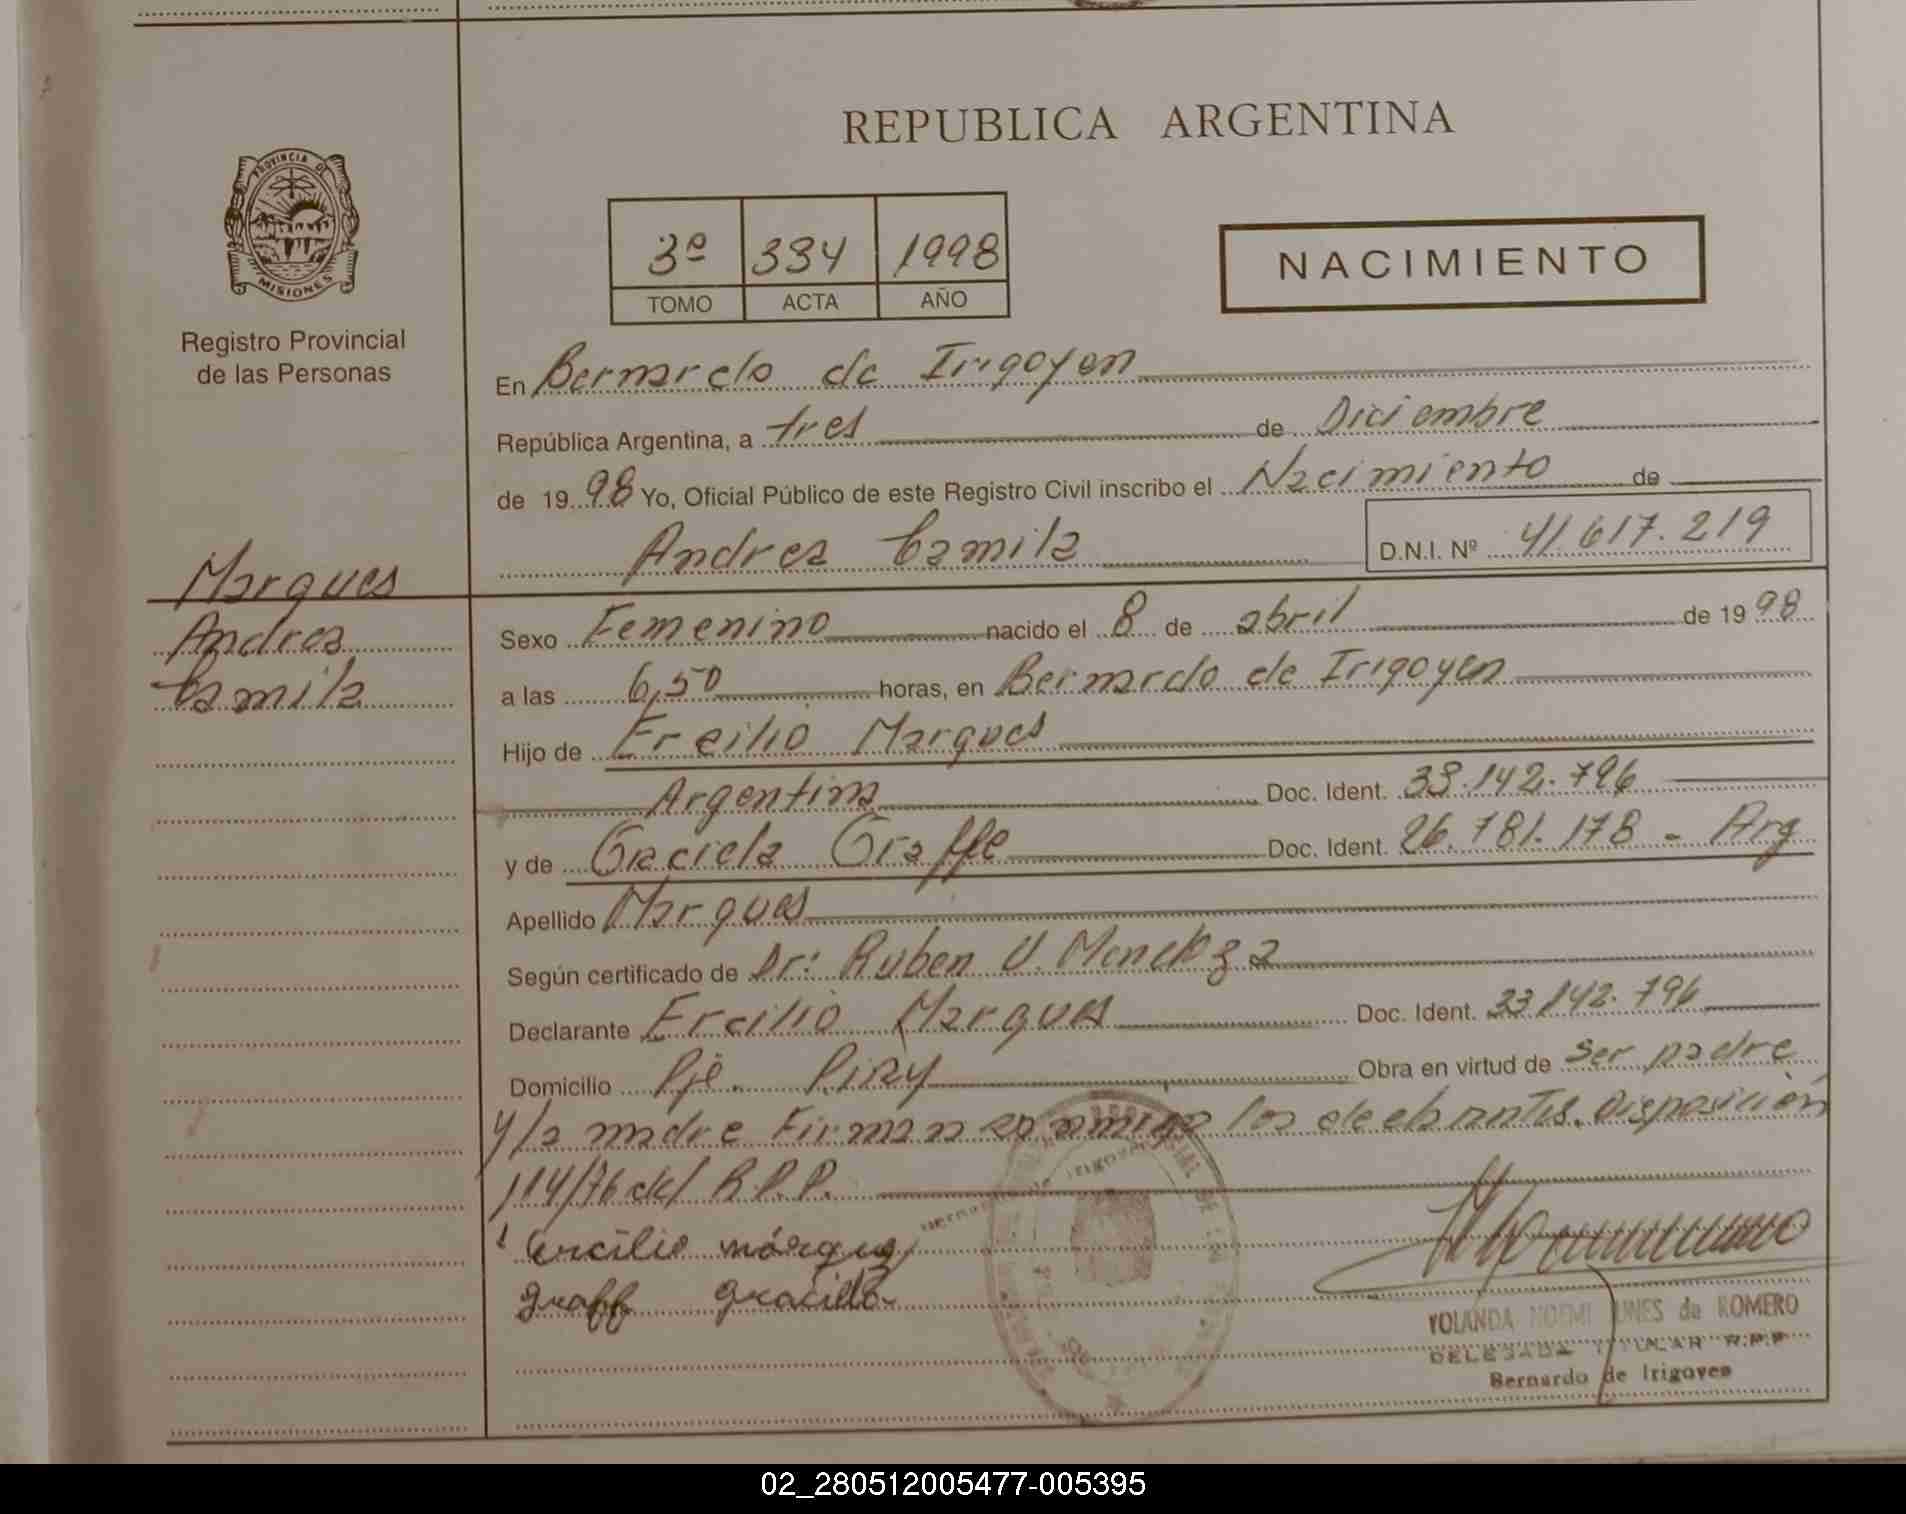 PROVINCIA DE
MISIONES
Registro Provincial
de las Personas
Marques
Andrea
Camila
REPUBLICA ARGENTINA
3º 334 1998
TOMO ACTA AÑO
NACIMIENTO
En Bernardo de Irigoyen
República Argentina, a tres de Diciembre
de 1998 Yo, Oficial Público de este Registro Civil inscribo el Nacimiento de
Andrea Camila D.N.I. Nº 41.617.219
Sexo Femenino nacido el 8 de abril de 1998
a las 6,50 horas, en Bernardo de Irigoyen
Hijo de Ercilio Marques
Argentina Doc. Ident. 33.142.796
y de Graciela Graffe Doc. Ident. 26.781.178 - Arg
Apellido Marques
Según certificado de Dr: Ruben V. Mendoza
Declarante Ercilio Marques Doc. Ident. 23.142.796
Domicilio Pje. Piray Obra en virtud de ser padre
y la madre Firman conmigo los declarantes. Disposición
114/76 del R.P.P.
Ercilio márquez
graff graciela
YOLANDA NOEMI de ROMERO
DELEGADA TITULAR R.P.P
Bernardo de Irigoyen
02_280512005477-005395